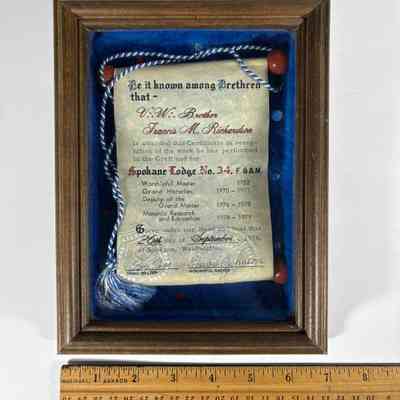 Be it known among Brethren
that –
V∴W∴ Brother
Francis M. Richardson
is awarded this Certificate in recog-
nition of the work he has performed
in the Craft and for
Spokane Lodge No. 34, F. & A.M.
Worshipful Master 1952
Grand Historian 1970 - 1971
Deputy of the
Grand Master 1976 - 1978
Masonic Research
and Education 1978 - 1979
Given under our Hand and Seal this
26th day of September
Spokane, Washington
WORSHIPFUL MASTER
1 2 3 4 5 6 7 8